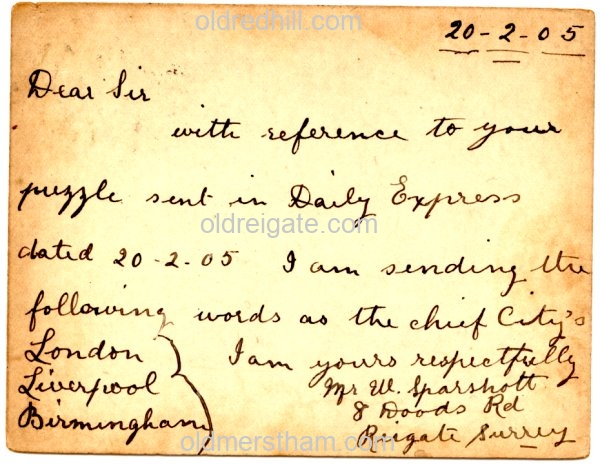 oldredhill.com
20-2-05
Dear Sir
with reference to your
puzzle sent in Daily Express
oldreigate.com
dated 20-2-05 I am sending the
following words as the chief City's
London
Liverpool
Birmingham
I am yours respectfully
Mr W. Sparshott
8 Doods Rd
Reigate Surrey
oldmerstham.com